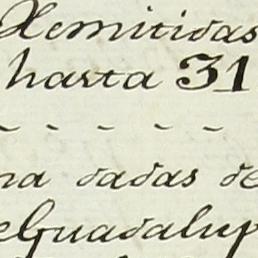 Remitidas
hasta 31
- - - - -
na dadas de
eGuadalup